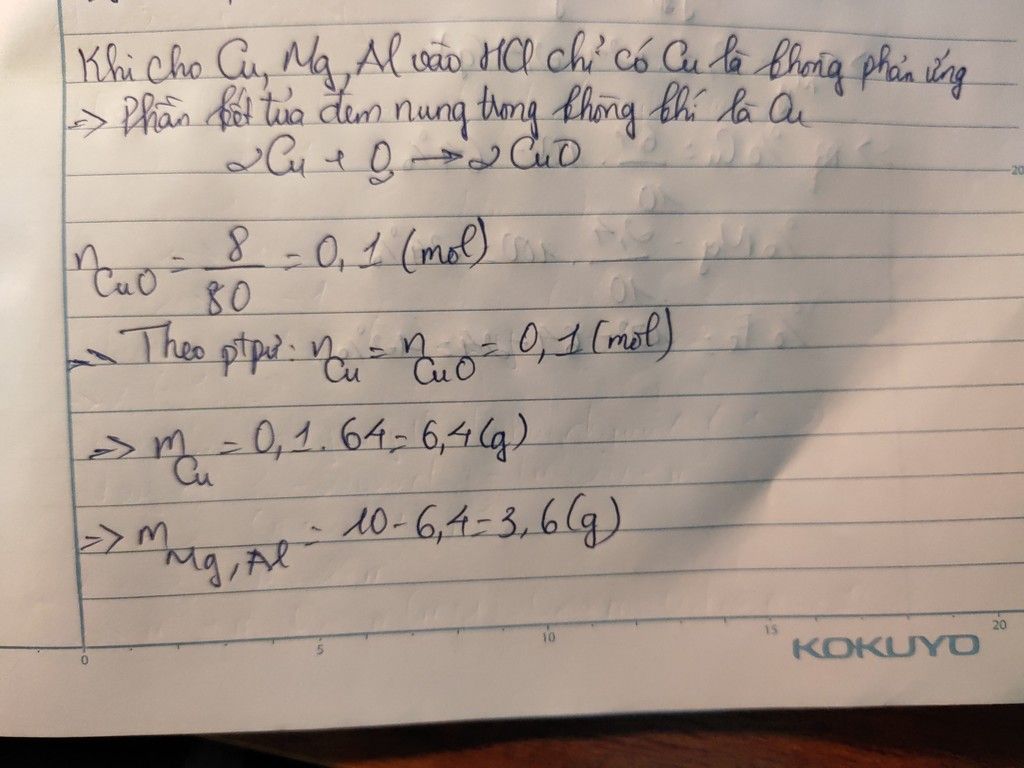 Khi cho Cu, Mg, Al vào HCl chỉ có Cu là không phản ứng
=> Phần kết tủa đem nung trong không khí là Cu
2Cu + O2 → 2CuO
nCuO = 8/80 = 0,1 (mol)
=> Theo ptpứ: nCu = nCuO = 0,1 (mol)
=> mCu = 0,1 . 64 = 6,4 (g)
=> mMg, Al = 10 - 6,4 = 3,6 (g)
20
0 5 10 15 20
KOKUYO